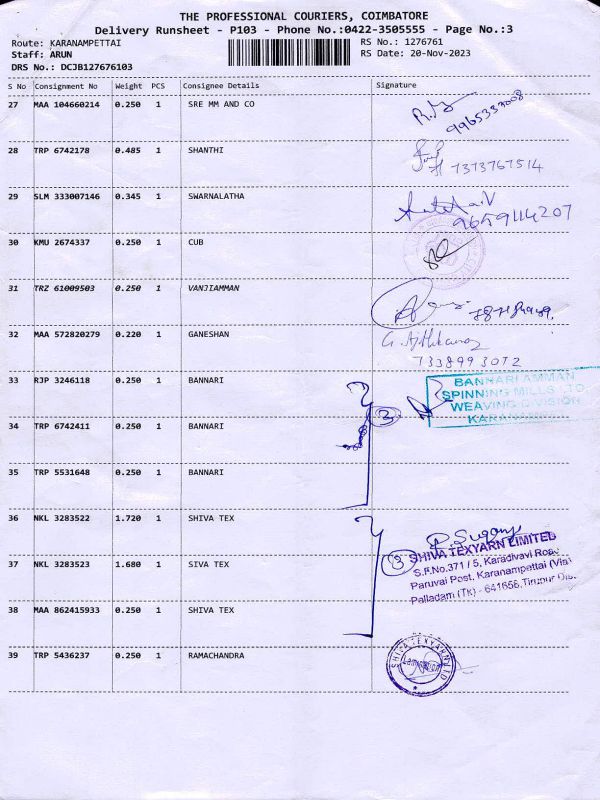 THE PROFESSIONAL COURIERS, COIMBATORE
Delivery Runsheet - P103 - Phone No.:0422-3505555 - Page No.:3
Route: KARANAMPETTAI
RS No.: 1276761
Staff: ARUN
RS Date: 20-Nov-2023
DRS No.: DCJB127676103
S No Consignment No Weight PCS Consignee Details Signature
27 MAA 104660214 0.250 1 SRE MM AND CO
9965333008
28 TRP 6742178 0.485 1 SHANTHI
7373767514
29 SLM 333007146 0.345 1 SWARNALATHA
9659114207
30 KMU 2674337 0.250 1 CUB
31 TRZ 61009503 0.250 1 VANJIAMMAN
32 MAA 572820279 0.220 1 GANESHAN
7338993072
33 RJP 3246118 0.250 1 BANNARI
3
BANNARI AMMAN
SPINNING MILLS LTD
WEAVING DIVISION
34 TRP 6742411 0.250 1 BANNARI
35 TRP 5531648 0.250 1 BANNARI
36 NKL 3283522 1.720 1 SHIVA TEX
3
SHIVA TEXYARN LIMITED
S.F.No.371 / 5, Karadivavi Road
Paruvai Post, Karanampettai (Via)
Palladam (Tk) - 641658, Tirupur Dist.
37 NKL 3283523 1.680 1 SIVA TEX
38 MAA 862415933 0.250 1 SHIVA TEX
39 TRP 5436237 0.250 1 RAMACHANDRA
SHIVA TEXYARN LTD